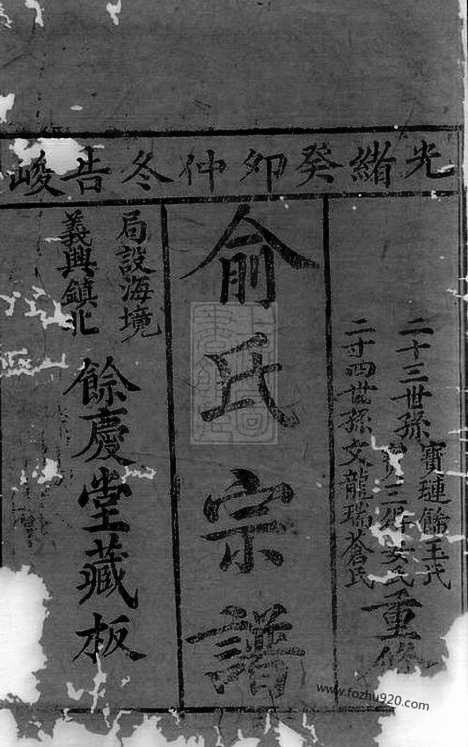 光緒癸卯仲冬告峻
二十三世孫
寶璉飾玉氏
二十四世孫文龍瑞蒼氏
重修
俞氏宗譜
局設海境
義興鎮北
餘慶堂藏板
www.fozhu920.com